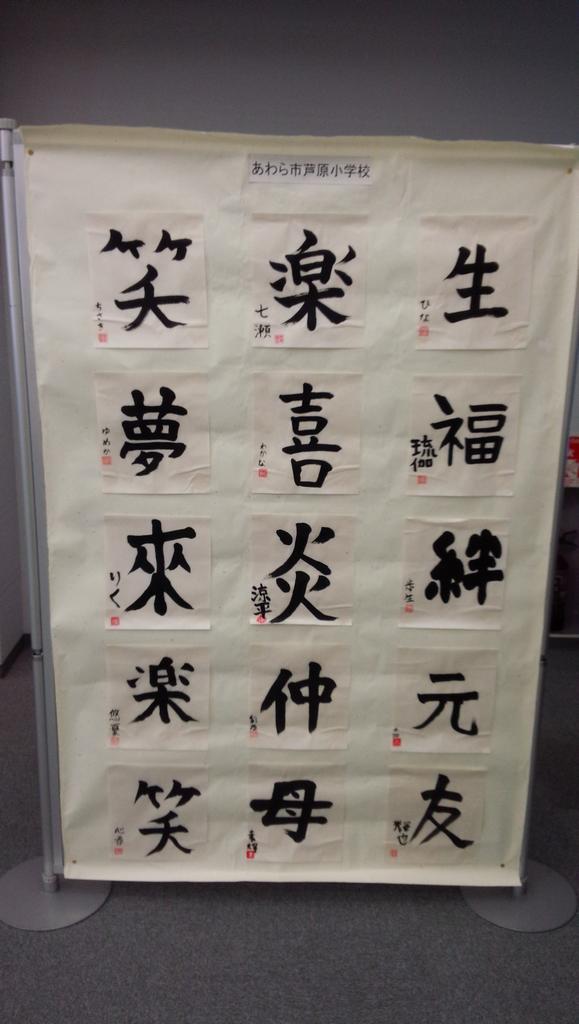 あわら市芦原小学校
笑 楽 生
ちさき 七瀬 ひな
夢 喜 福
ゆめか わかな 琉伽
來 炎 絆
りく 涼平
楽 仲 元
悠夏
笑 母 友
心香